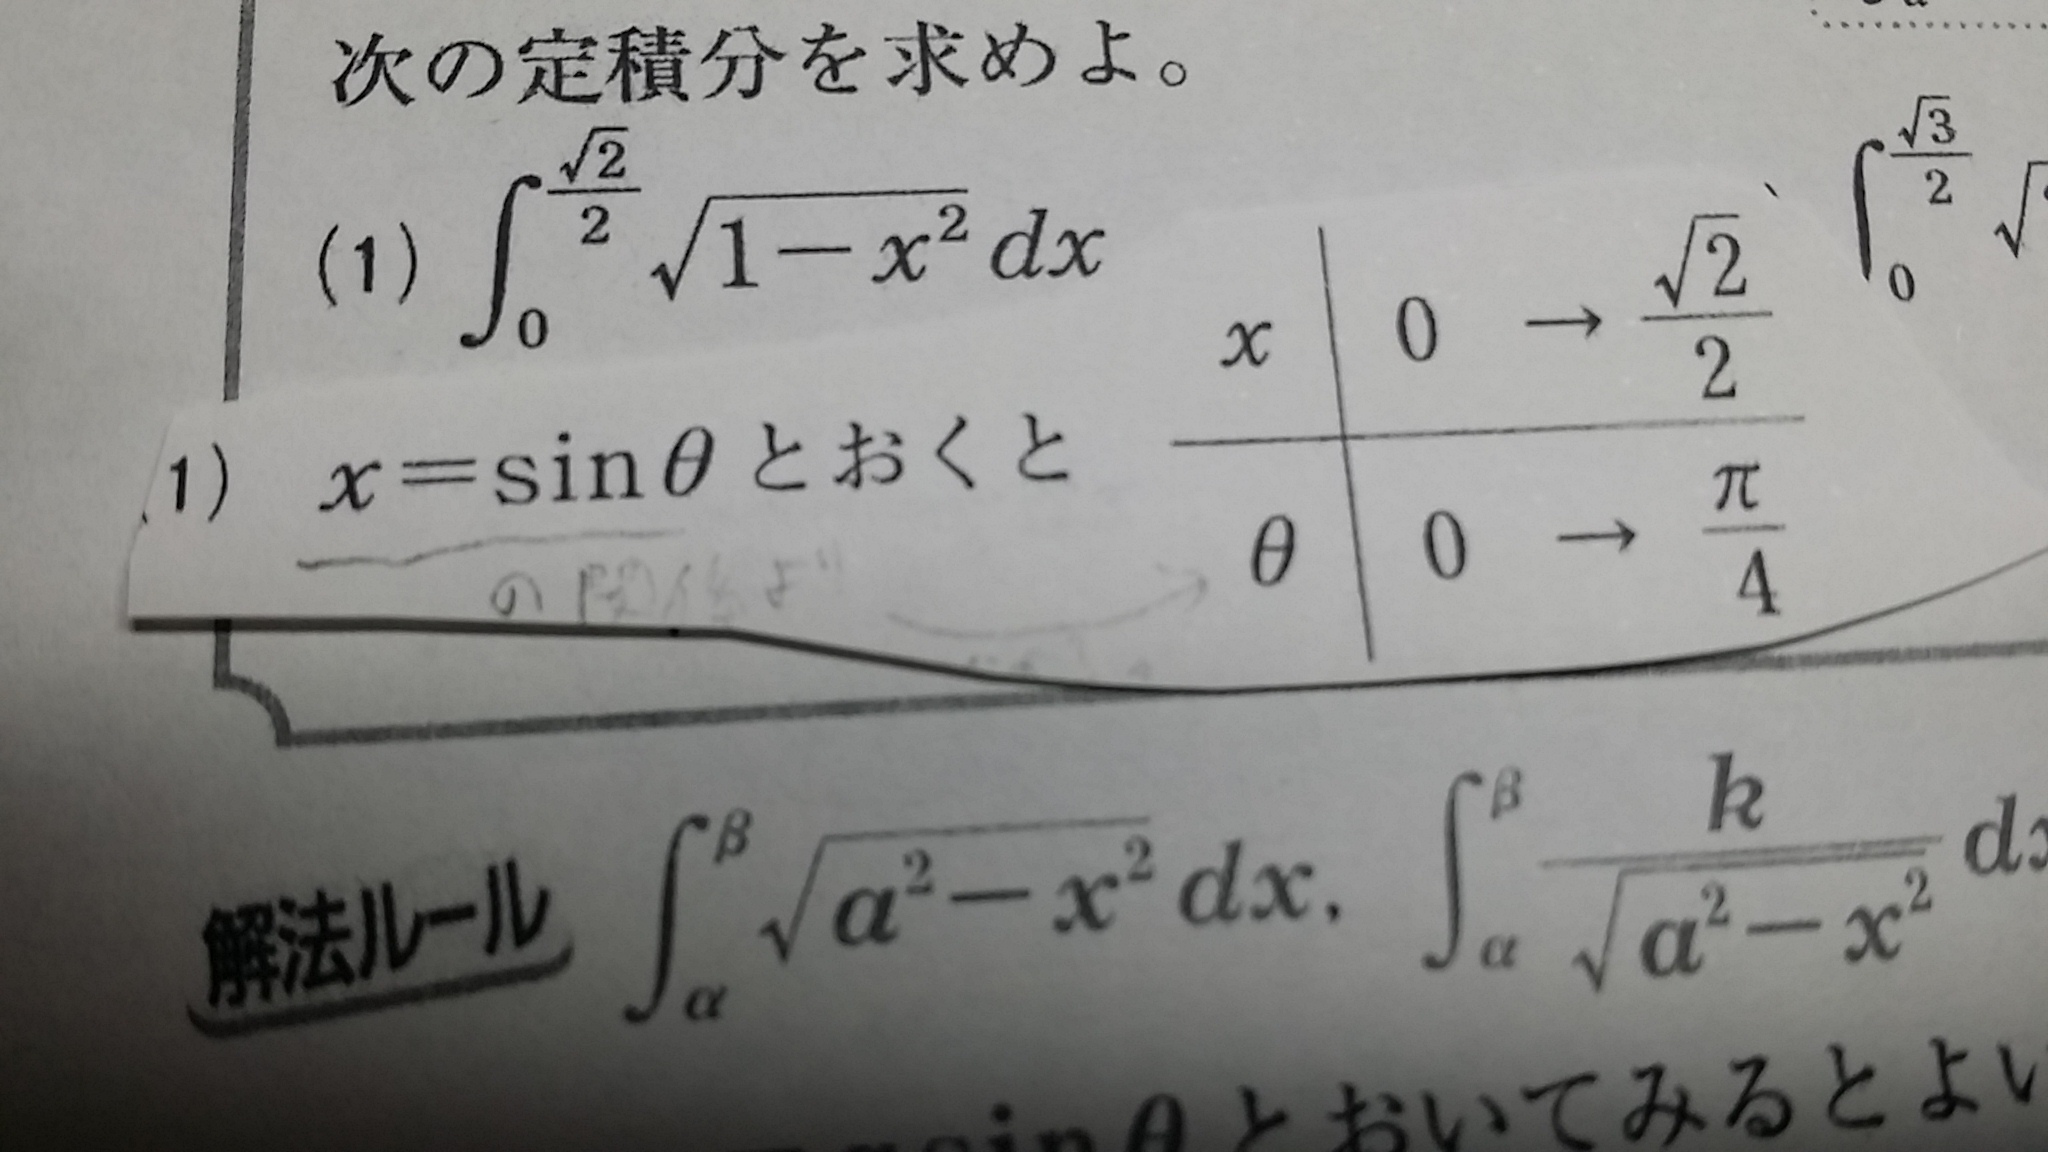 次の定積分を求めよ。
(1) ∫₀^{√2/2} √(1−x²) dx
∫₀^{√3/2} √
1) x=sinθ とおくと
x | 0 → √2/2
θ | 0 → π/4
の関係より
解法ルール ∫_α^β √(a²−x²) dx, ∫_α^β k/√(a²−x²) dx
sinθ とおいてみるとよい